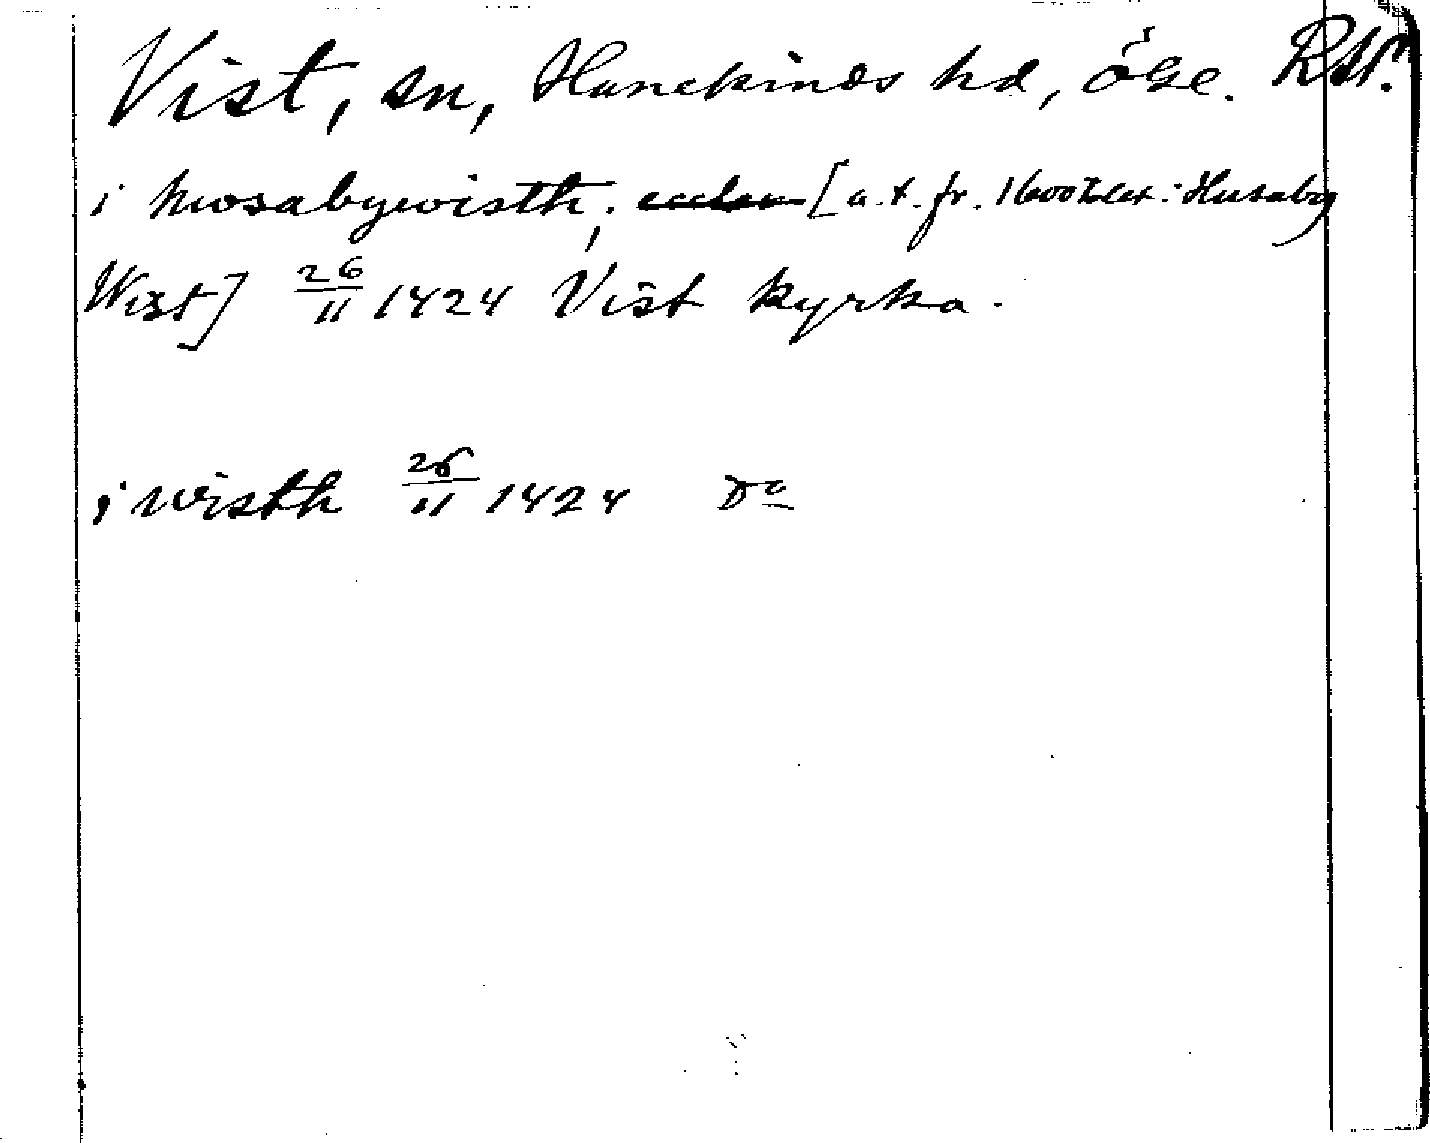 Vist, sn, Hanekinds hd, Ög.
i hwsabywisth, [a. t. fr. 1600 talet: Husaby
Wist] 26/11 1424 Vist kyrka.
i wisth 26/11 1424 Do